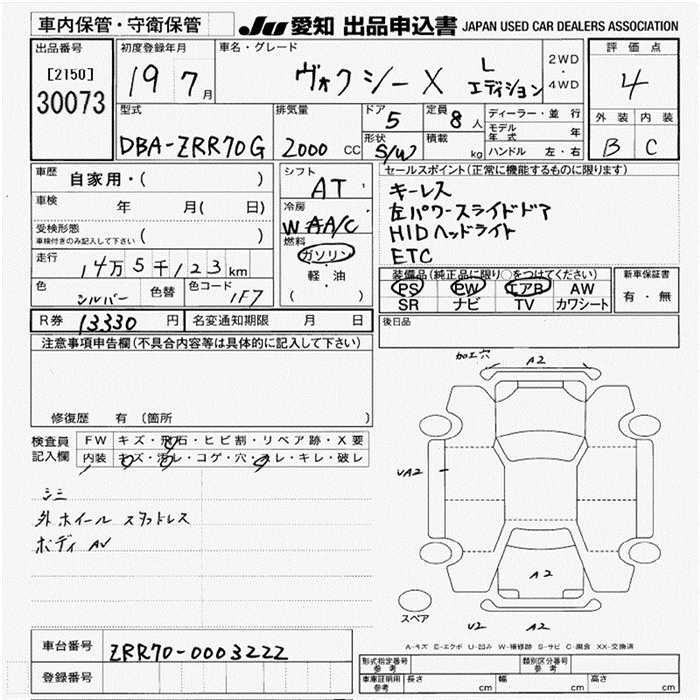 車内保管・守衛保管 JU 愛知 出品申込書 JAPAN USED CAR DEALERS ASSOCIATION
出品番号 初度登録年月 車名・グレード 2WD・4WD 評価点
[2150] 19 7月 ヴォクシー X L エディション 4
30073
型式 排気量 ドア 5 定員 8人 ディーラー・並行 外装 内装
DBA-ZRR70G 2000 CC 形状 S/W 積載 kg モデル年式 年 B C
ハンドル 左・右
車歴 自家用・( ) シフト AT セールスポイント(正常に機能するものに限ります)
車検 年 月( 日) 冷房 WAA/C キーレス
受検形態 ( ) 左パワースライドドア
車検付きのみ記入して下さい 燃料 HIDヘッドライト
走行 14万5千123km ガソリン ETC
軽・油 装備品(純正品に限り○をつけてください) 新車保証書
色 シルバー 色替 色コード 1F7 ( ) PS PW エアB AW 有・無
SR ナビ TV カワシート
R券 13330 円 名変通知期限 月 日 後日品
注意事項申告欄(不具合内容等は具体的に記入して下さい)
修復歴 有 (箇所 )
検査員 FW キズ・飛石・ヒビ割・リペア跡・X要
記入欄 内装 キズ・汚レ・コゲ・穴・スレ・キレ・破レ
外 ホイール スタッドレス
ボディ AV
加工穴 A2
UA2
A2
スペア
U2 A2
A-キズ E-エクボ U-凹み W-補修跡 S-サビ C-腐食 XX-交換済
車台番号 ZRR70-0003222
登録番号
形式指定番号 参考 類別区分番号 参考
車庫証明用 参考 長さ cm 幅 cm 高さ cm